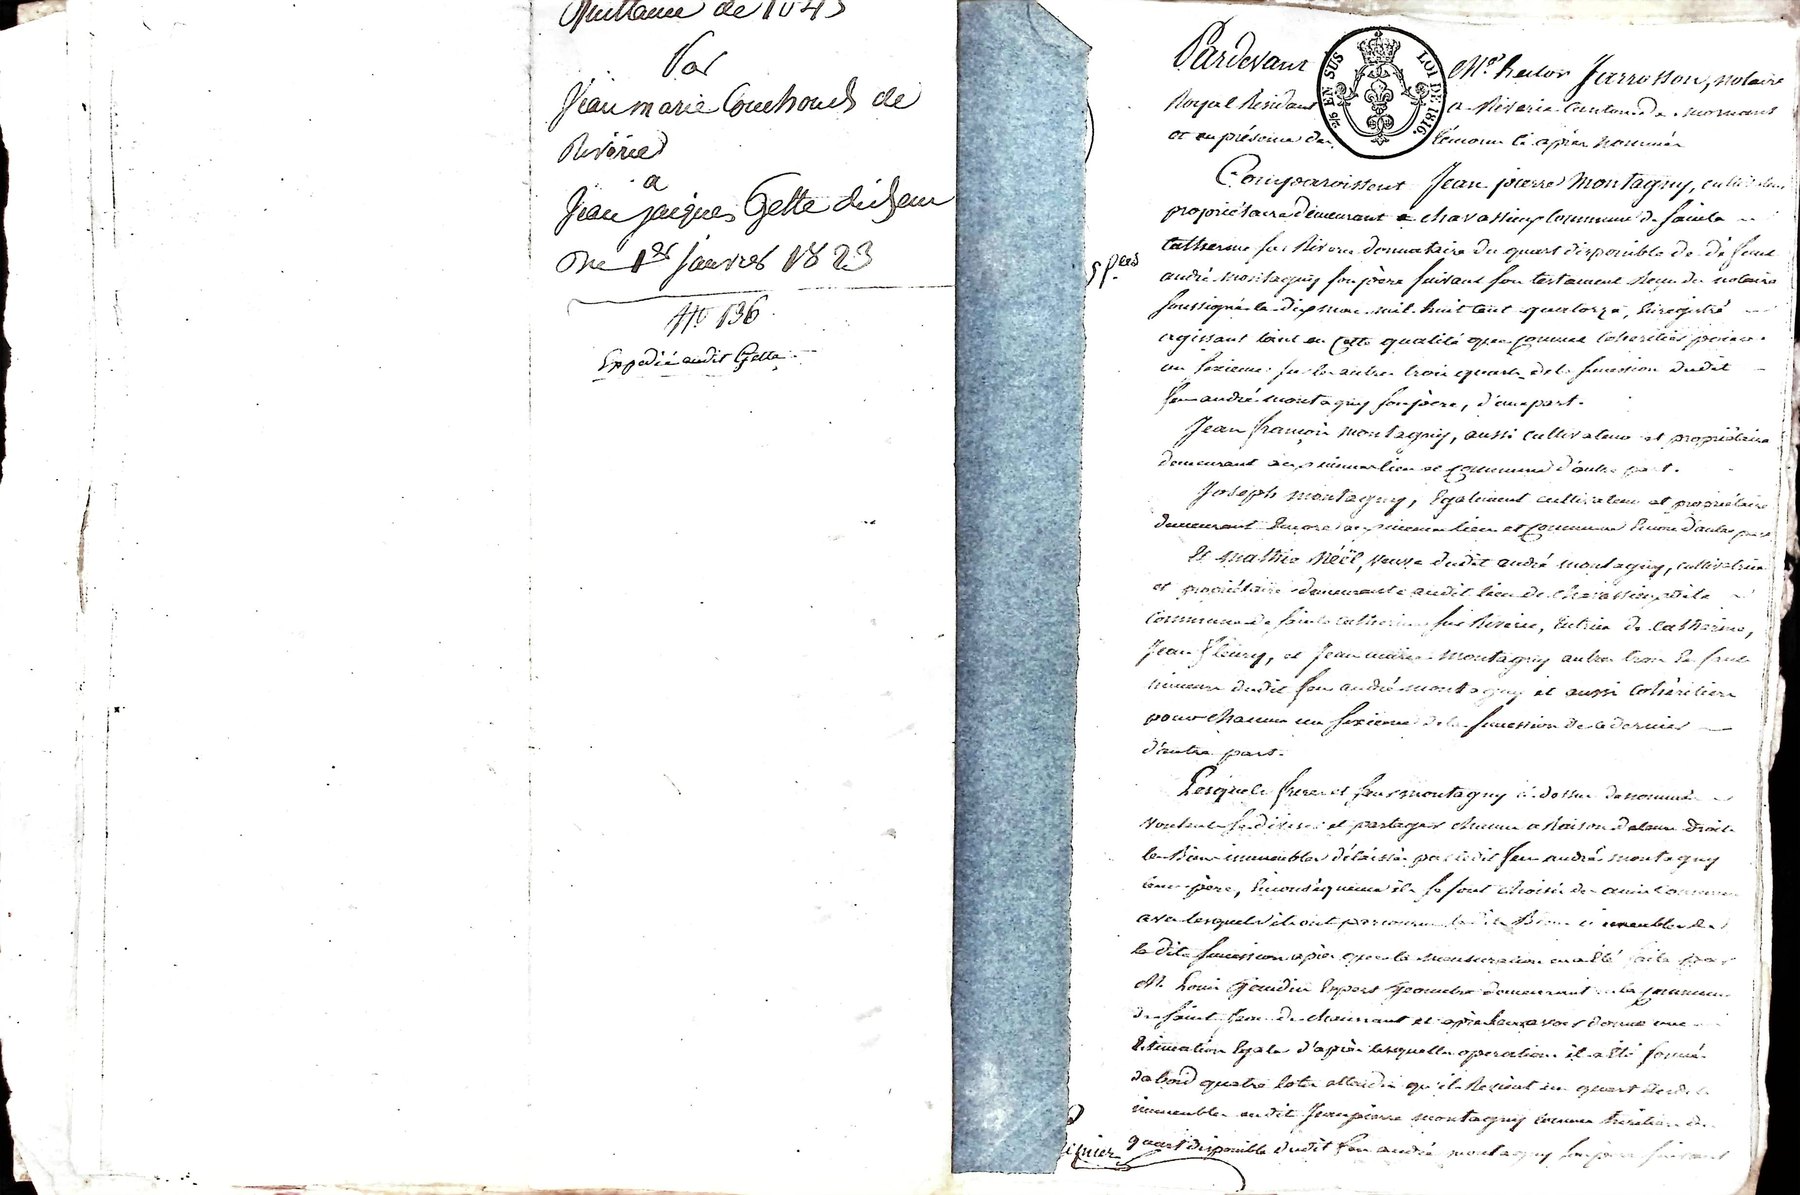 Quittance de 1045
Par
Jean marie Couchoud de
Riverie
a
Jean jacques Gette
Du 1er janvier 1823
No 136
Expedié audit Gette
Pardevant Me hector Jarrosson, notaire
Royal Résidant a Riverie canton de mornant
et en présence des témoins ci après nommés
EN SUS LOI DE 1816.
Comparoissent Jean pierre Montagny, cultivateur
propriétaire demeurant a chavassieu Commune de sainte
Catherine sur Riverie donnataire du quart disponible de défunt
andré montagny son père suivant son testament Reçu du notaire
soussigné le dix mai mil huit cent quatorze, Enregistré
agissant tant en cette qualité que comme Cohéritier pour
un sixieme sur les autres trois quarts de la succession dudit
feu andré montagny son père, d'une part.
Jean françois montagny, aussi cultivateur et propriétaire
demeurant au même lieu et Commune d'autre part.
Joseph montagny, Egalement cultivateur et propriétaire
demeurant Encore au même lieu et Commune Encore d'autre part
Et mathie Néël, veuve dudit andré montagny, cultivatrice
et propriétaire demeurante audit lieu de chavassieu dite
commune de sainte catherine sur Riverie, tutrice de catherine,
Jean fleury, et Jean marie montagny autres trois Enfants
mineurs dudit feu andré montagny et aussi Cohéritiers
pour chacun un sixieme de la succession de ce dernier
d'autre part.
Lesquels freres et sœur montagny ci dessus dénommés
voulant se diviser et partager chacun a Raison de leurs droits
les Biens immeubles délaissés par ledit feu andré montagny
leur père, En conséquence ils se sont choisis des amis communs
avec lesquels ils ont parcouru lesdits Biens immeubles de
la dite succession après que la mensuration en a Eté faite par
M. Louis Gaudin Expert Géometre demeurant en la Commune
de saint Jean de chaussant et après leur avoir donné une
Estimation Egale d'après lesquelles opérations il a Eté formé
d'abord quatre lots attendu qu'il Revient un quart desdits
immeubles audit Jean pierre montagny comme héritier du
quart disponible dudit feu andré montagny son père suivant